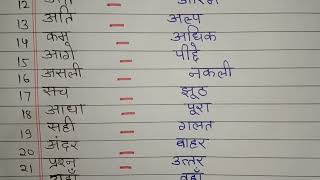 12
13 अति – अल्प
14 कम – अधिक
15 आगे – पीछे
16 असली – नकली
17 सच – झूठ
18 आधा – पूरा
19 सही – गलत
20 अंदर – बाहर
21 प्रश्न – उत्तर
यहाँ – वहाँ